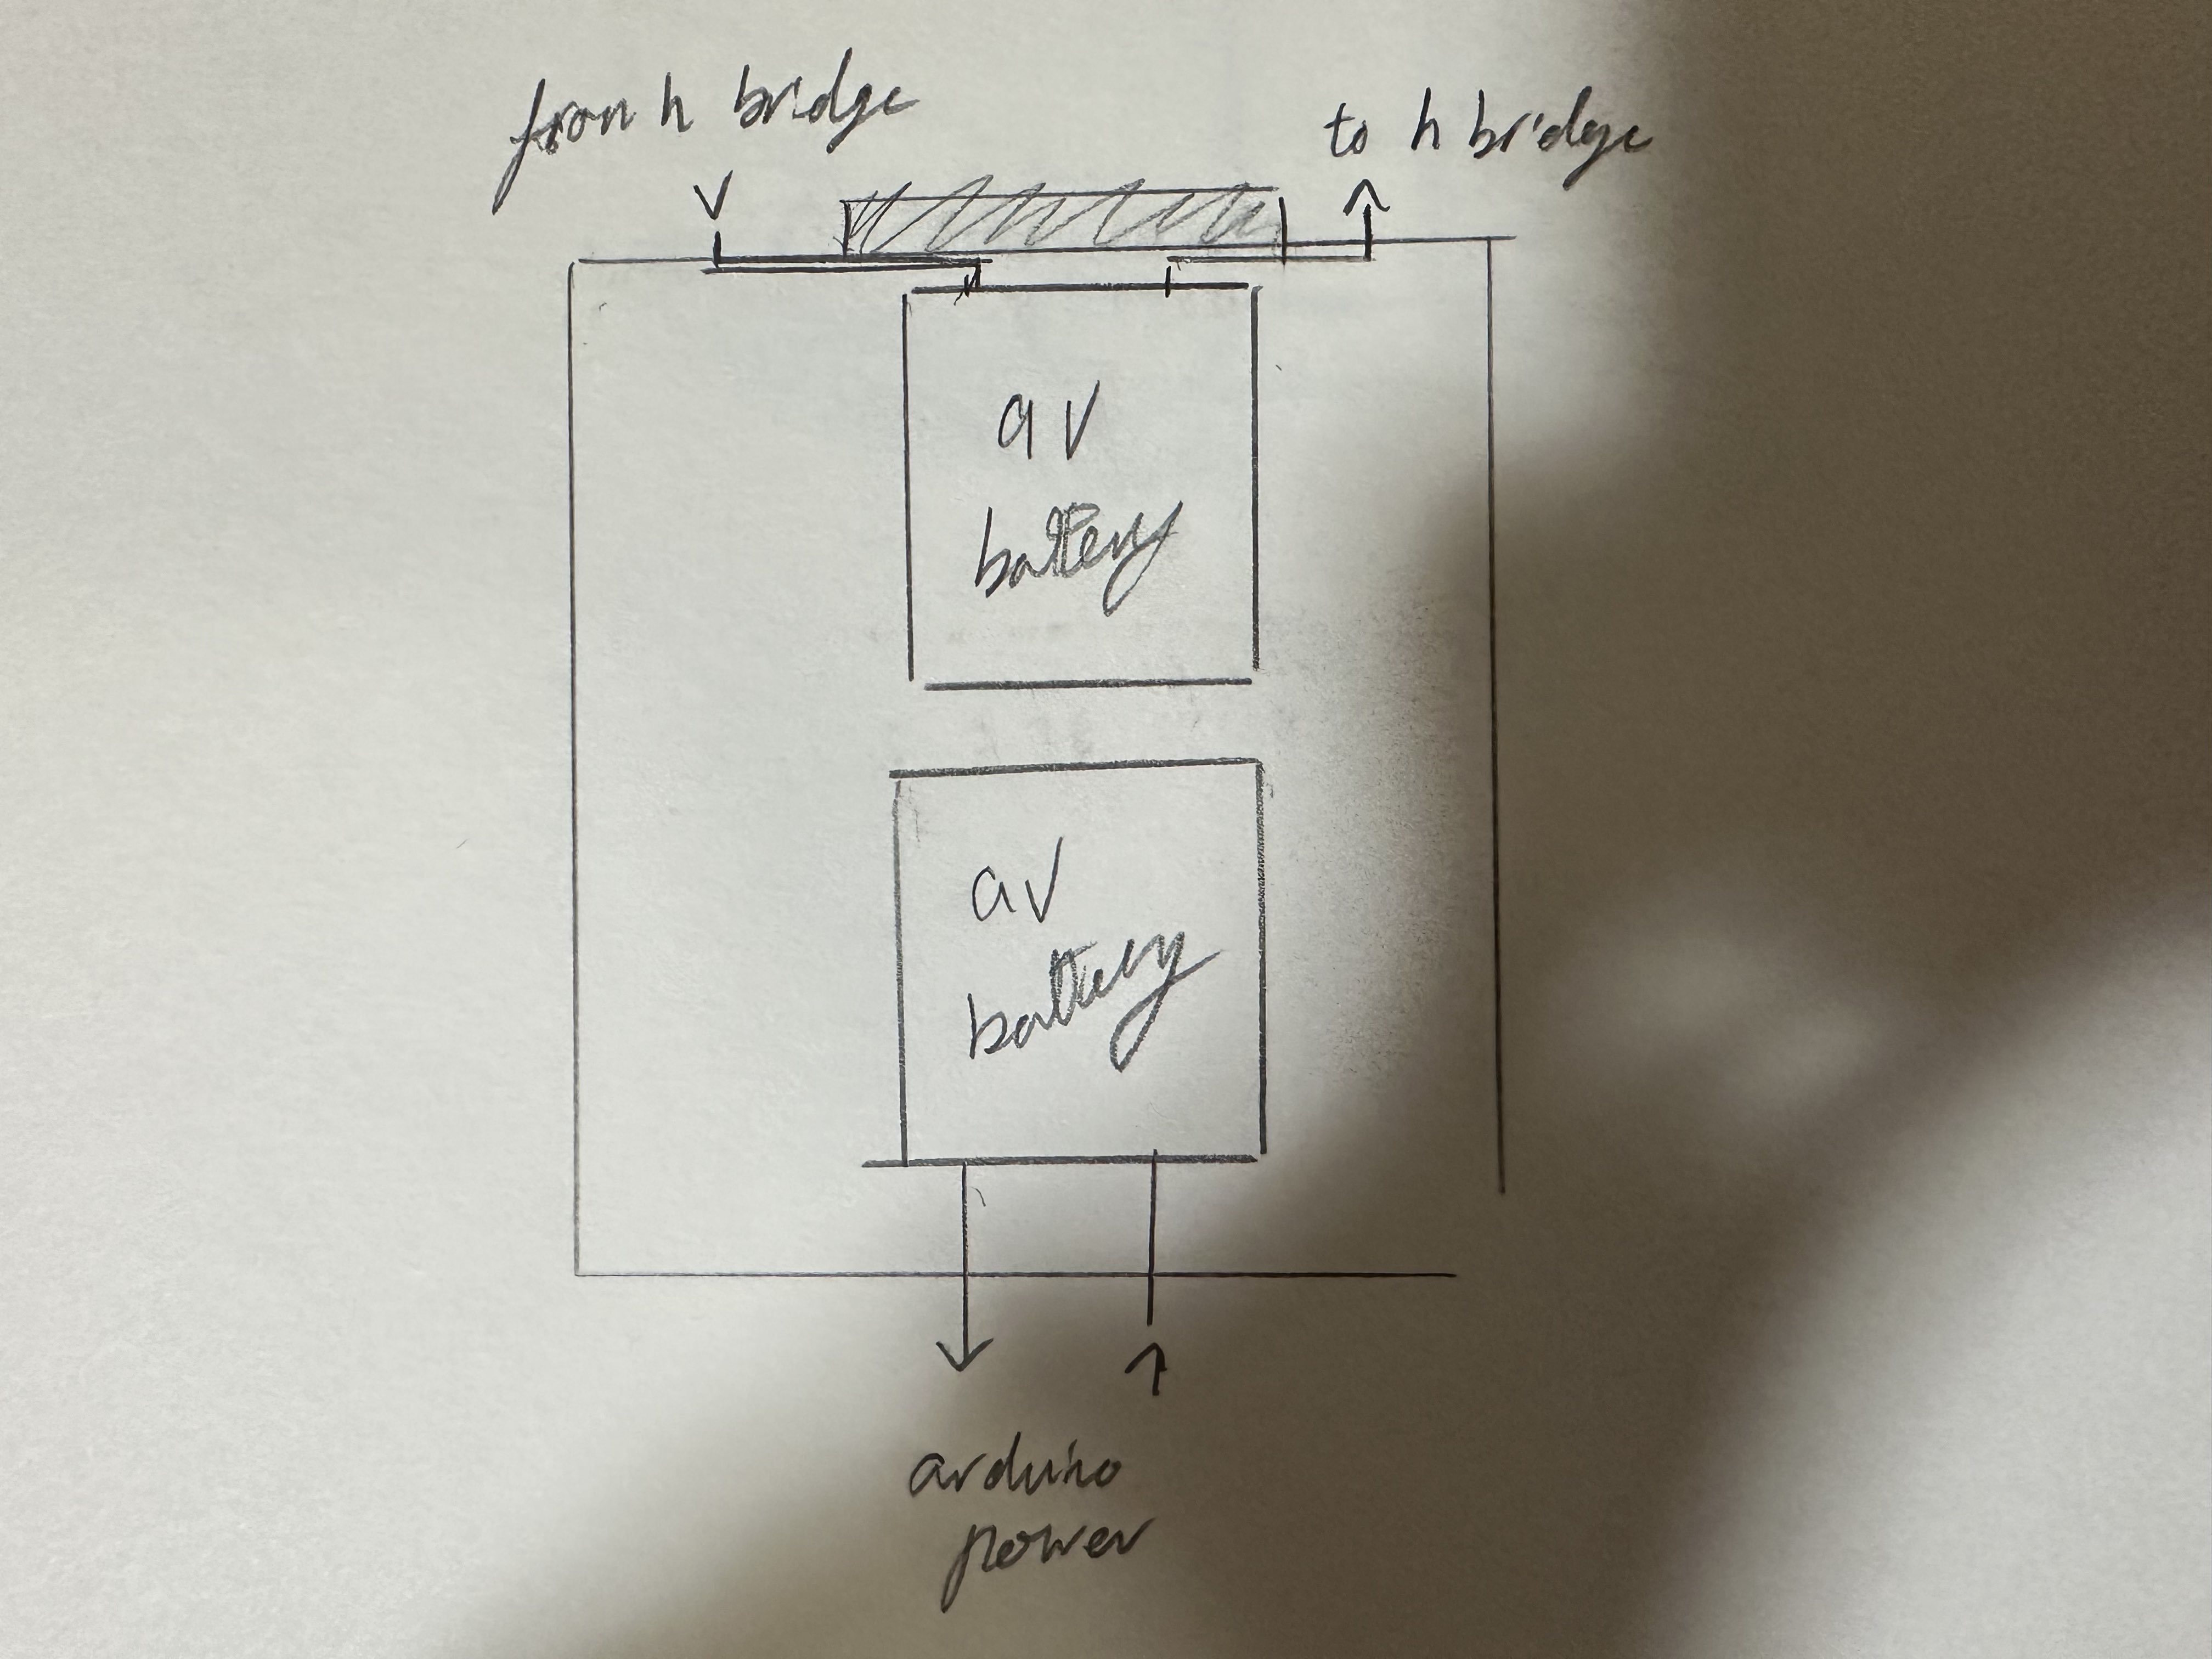 from h bridge
to h bridge
9V
battery
9V
battery
arduino
power